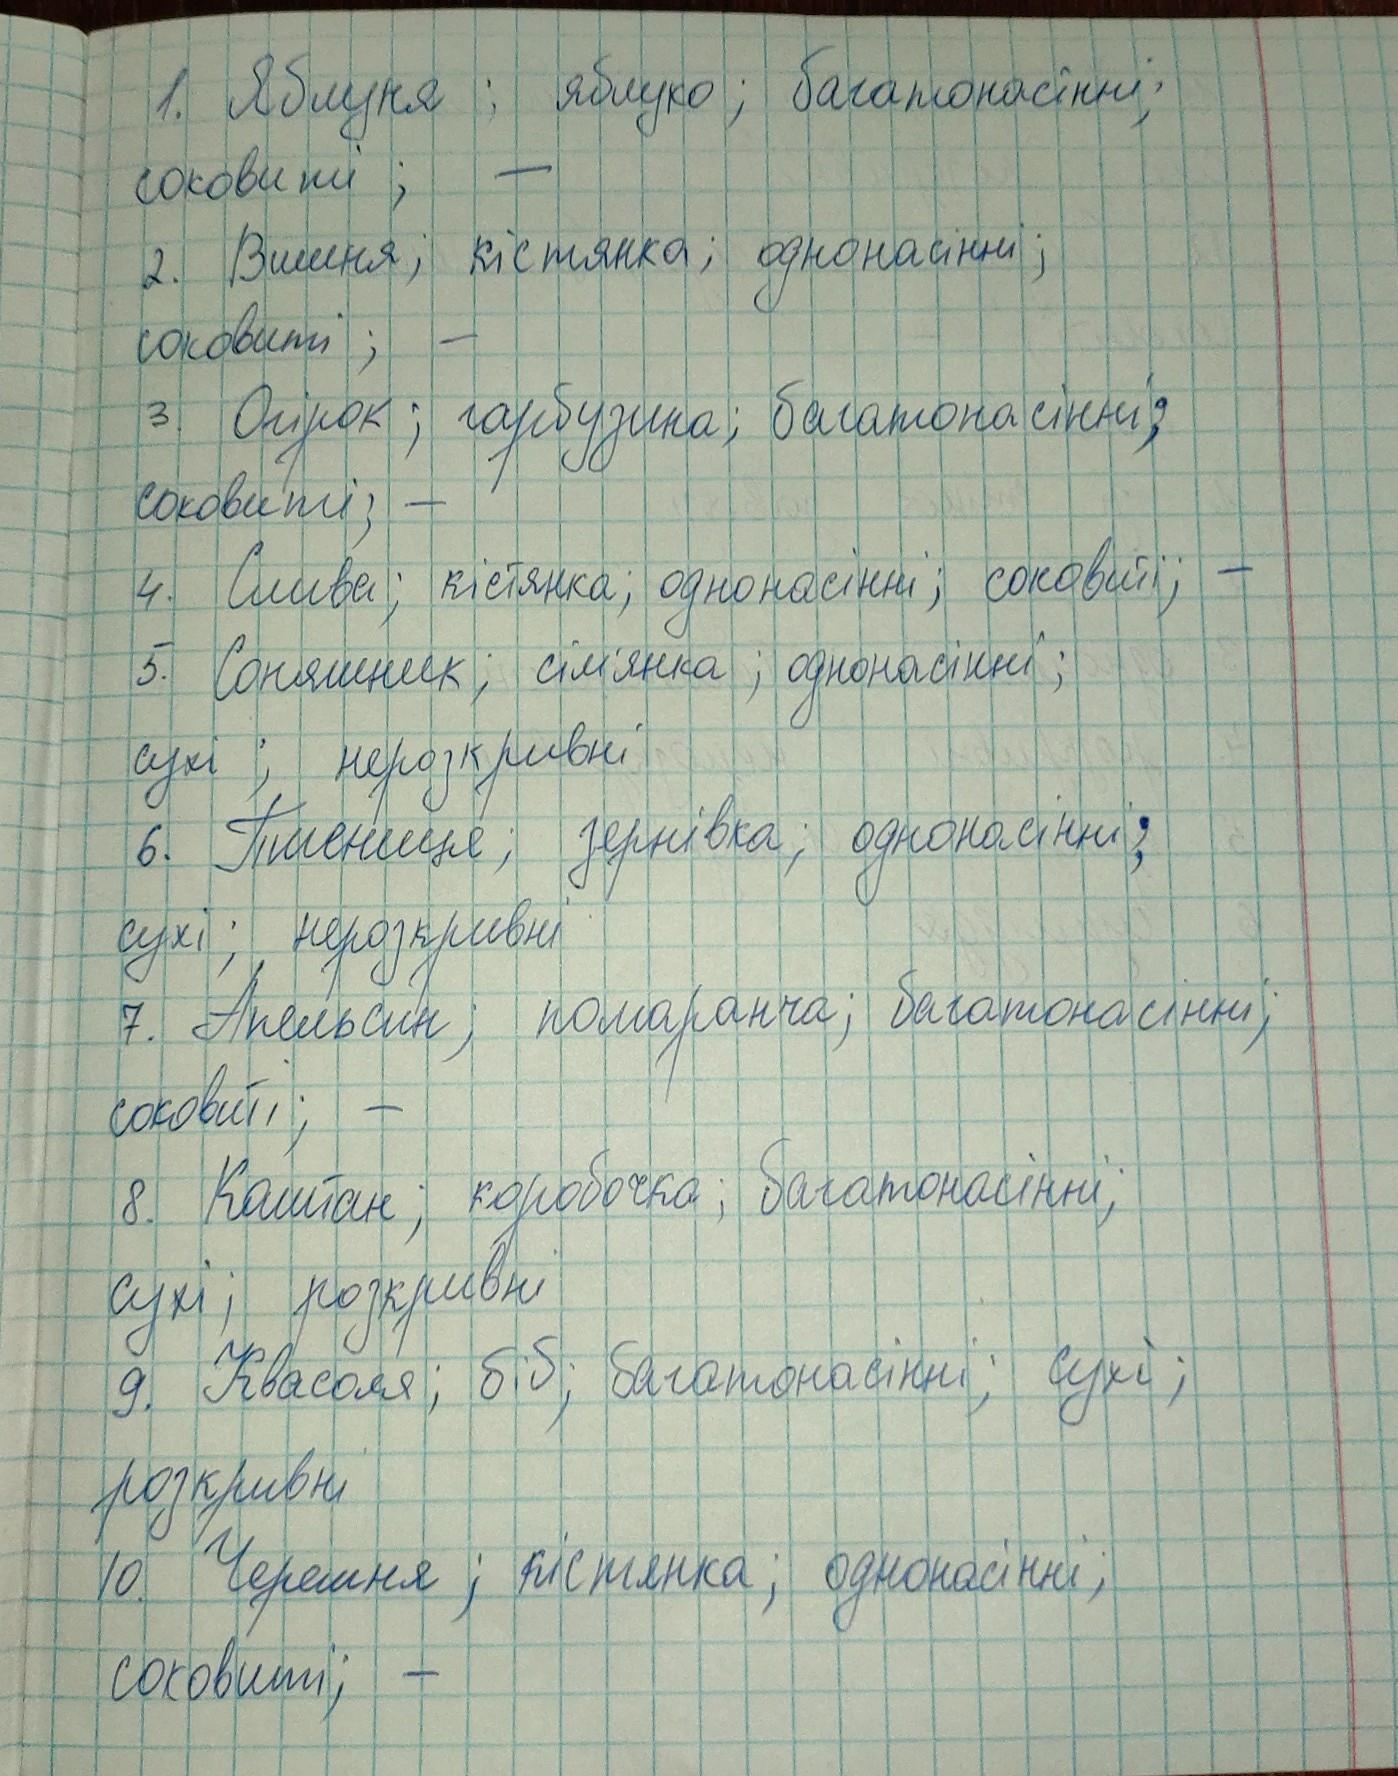 1. Яблуня ; яблуко ; багатонасінні;
соковиті ; —
2. Вишня; кістянка; однонасінні;
соковиті ; —
3. Огірок ; гарбузина; багатонасінні;
соковиті; —
4. Слива; кістянка; однонасінні; соковиті; —
5. Соняшник; сім'янка ; однонасінні ;
сухі ; нерозкривні
6. Пшениця; зернівка; однонасінні;
сухі ; нерозкривні
7. Апельсин; помаранча; багатонасінні;
соковиті; —
8. Каштан; коробочка; багатонасінні;
сухі; розкривні
9. Квасоля; біб; багатонасінні; сухі;
розкривні
10. Черешня ; кістянка; однонасінні;
соковиті; —